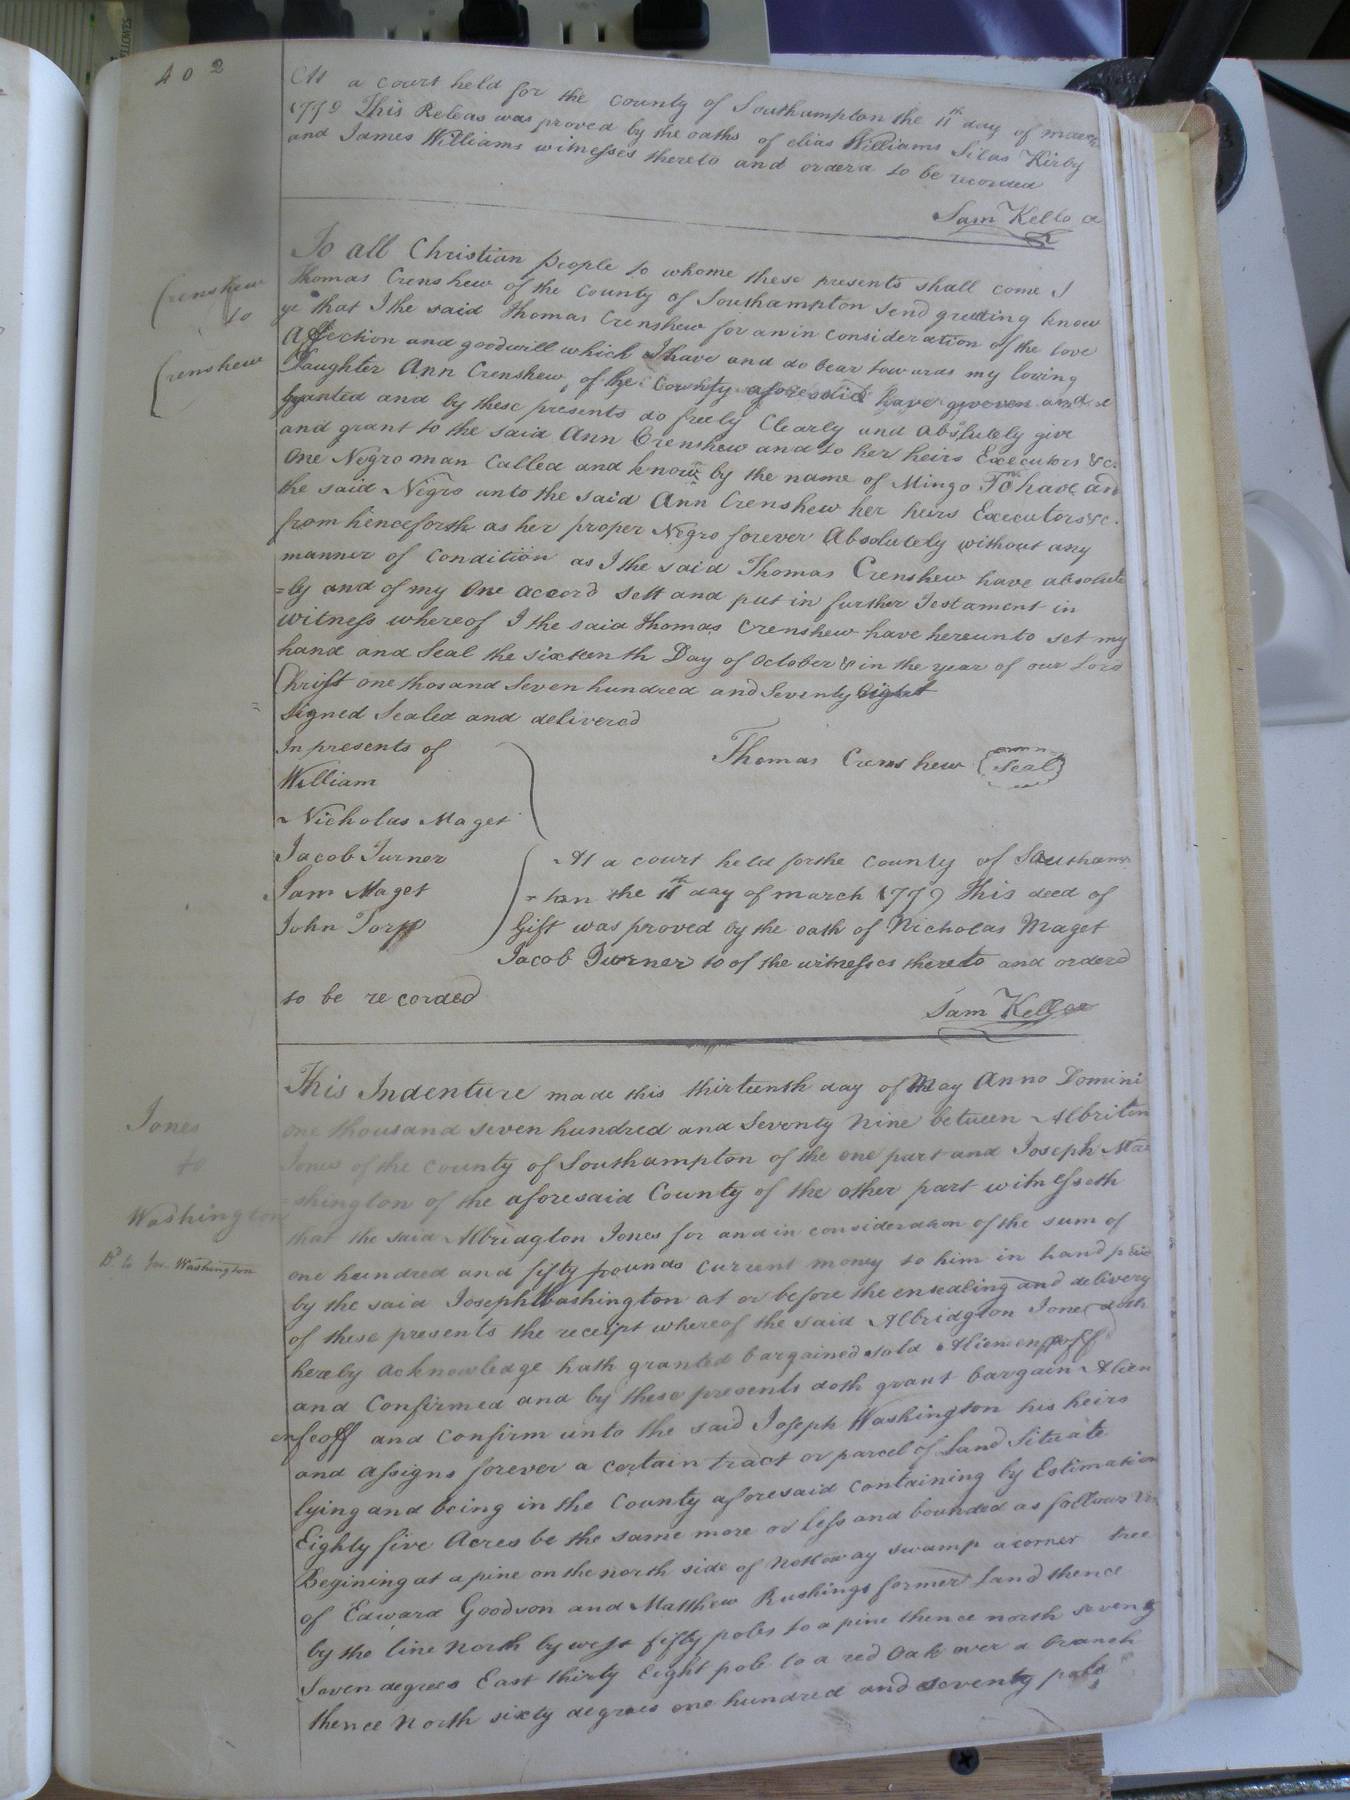 402
At a court held for the County of Southampton the 11th day of march
1779 This Releas was proved by the oaths of elias Williams Silas Kirby
and James Williams witnesses thereto and orderd to be recorded
Sam Kello
Crenshew
to
Crenshew
To all Christian People to whome these presents shall come I
Thomas Crenshew of the County of Southampton send greeting know
ye that I the said Thomas Crenshew for an in consideration of the love
Affection and goodwill which I have and do bear towards my loving
Daughter Ann Crenshew of the County aforesaid have given and
granted and by these presents do freely Clearly and absolutely give
and grant to the said Ann Crenshew and to her heirs Executors &c.
One Negro man Called and known by the name of Mingo To have and
the said Negro unto the said Ann Crenshew her heirs Executors &c.
from henceforth as her proper Negro forever Absolutely without any
manner of Condition as I the said Thomas Crenshew have absolute
=ly and of my One accord sett and put in further Testament in
Witness whereof I the said Thomas Crenshew have hereunto set my
hand and Seal the sixteenth Day of October & in the year of our Lord
Christ one thosand Seven hundred and Seventy Eight
Signed Sealed and delivered
In presents of
Thomas Crenshew Seal
William
Nicholas Maget
Jacob Turner
Sam Maget
John Torpp
At a court held for the County of Southam
=ton the 11th day of march 1779 This deed of
Gift was proved by the oath of Nicholas Maget
Jacob Turner to of the witnesses thereto and ordered
to be recorded
Sam Kello
Jones
to
Washington
Dd. to Jos. Washington
This Indenture made this thirteenth day of May Anno Domini
one thousand seven hundred and Seventy Nine between Albriton
Jones of the County of Southampton of the one part and Joseph Wa
=shington of the aforesaid County of the other part witnesseth
that the said Albridgton Jones for and in consideration of the sum of
one hundred and fifty pounds Current money to him in hand paid
by the said Joseph Washington at or before the ensealing and delivery
of these presents the receipt whereof the said Albridgton Jones doth
hereby acknowledge hath granted bargained sold Alienen
and Confirmed and by these presents doth grant bargain Alien
enfeoff and Confirm unto the said Joseph Washington his heirs
and assigns forever a certain tract or parcel of Land Situate
lying and being in the County aforesaid containing by Estimation
Eighty five Acres be the same more or less and bounded as follows
Begining at a pine on the north side of Nottoway swamp a corner tree
of Edward Goodson and Matthew Rushings former Land thence
by the line North by west fifty poles to a pine thence north seventy
Seven degrees East thirty Eight pole to a red Oak over a branch
thence North sixty degrees one hundred and seventy pole